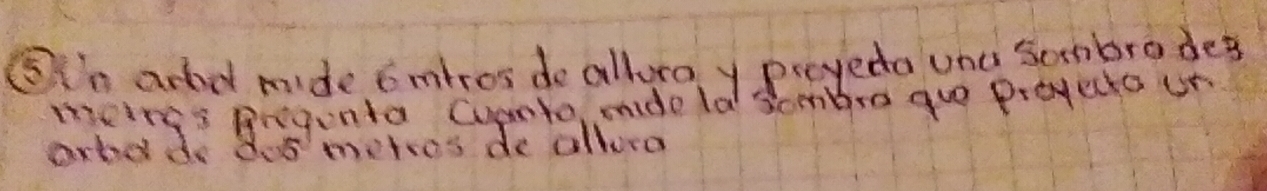 ⑤ Un arbol mide 6 mtros de altura y proyecta una Sombra de 3
metros Pregunta Cuanto mide la sombra que Proyecta un
arbol de dos metros de altura